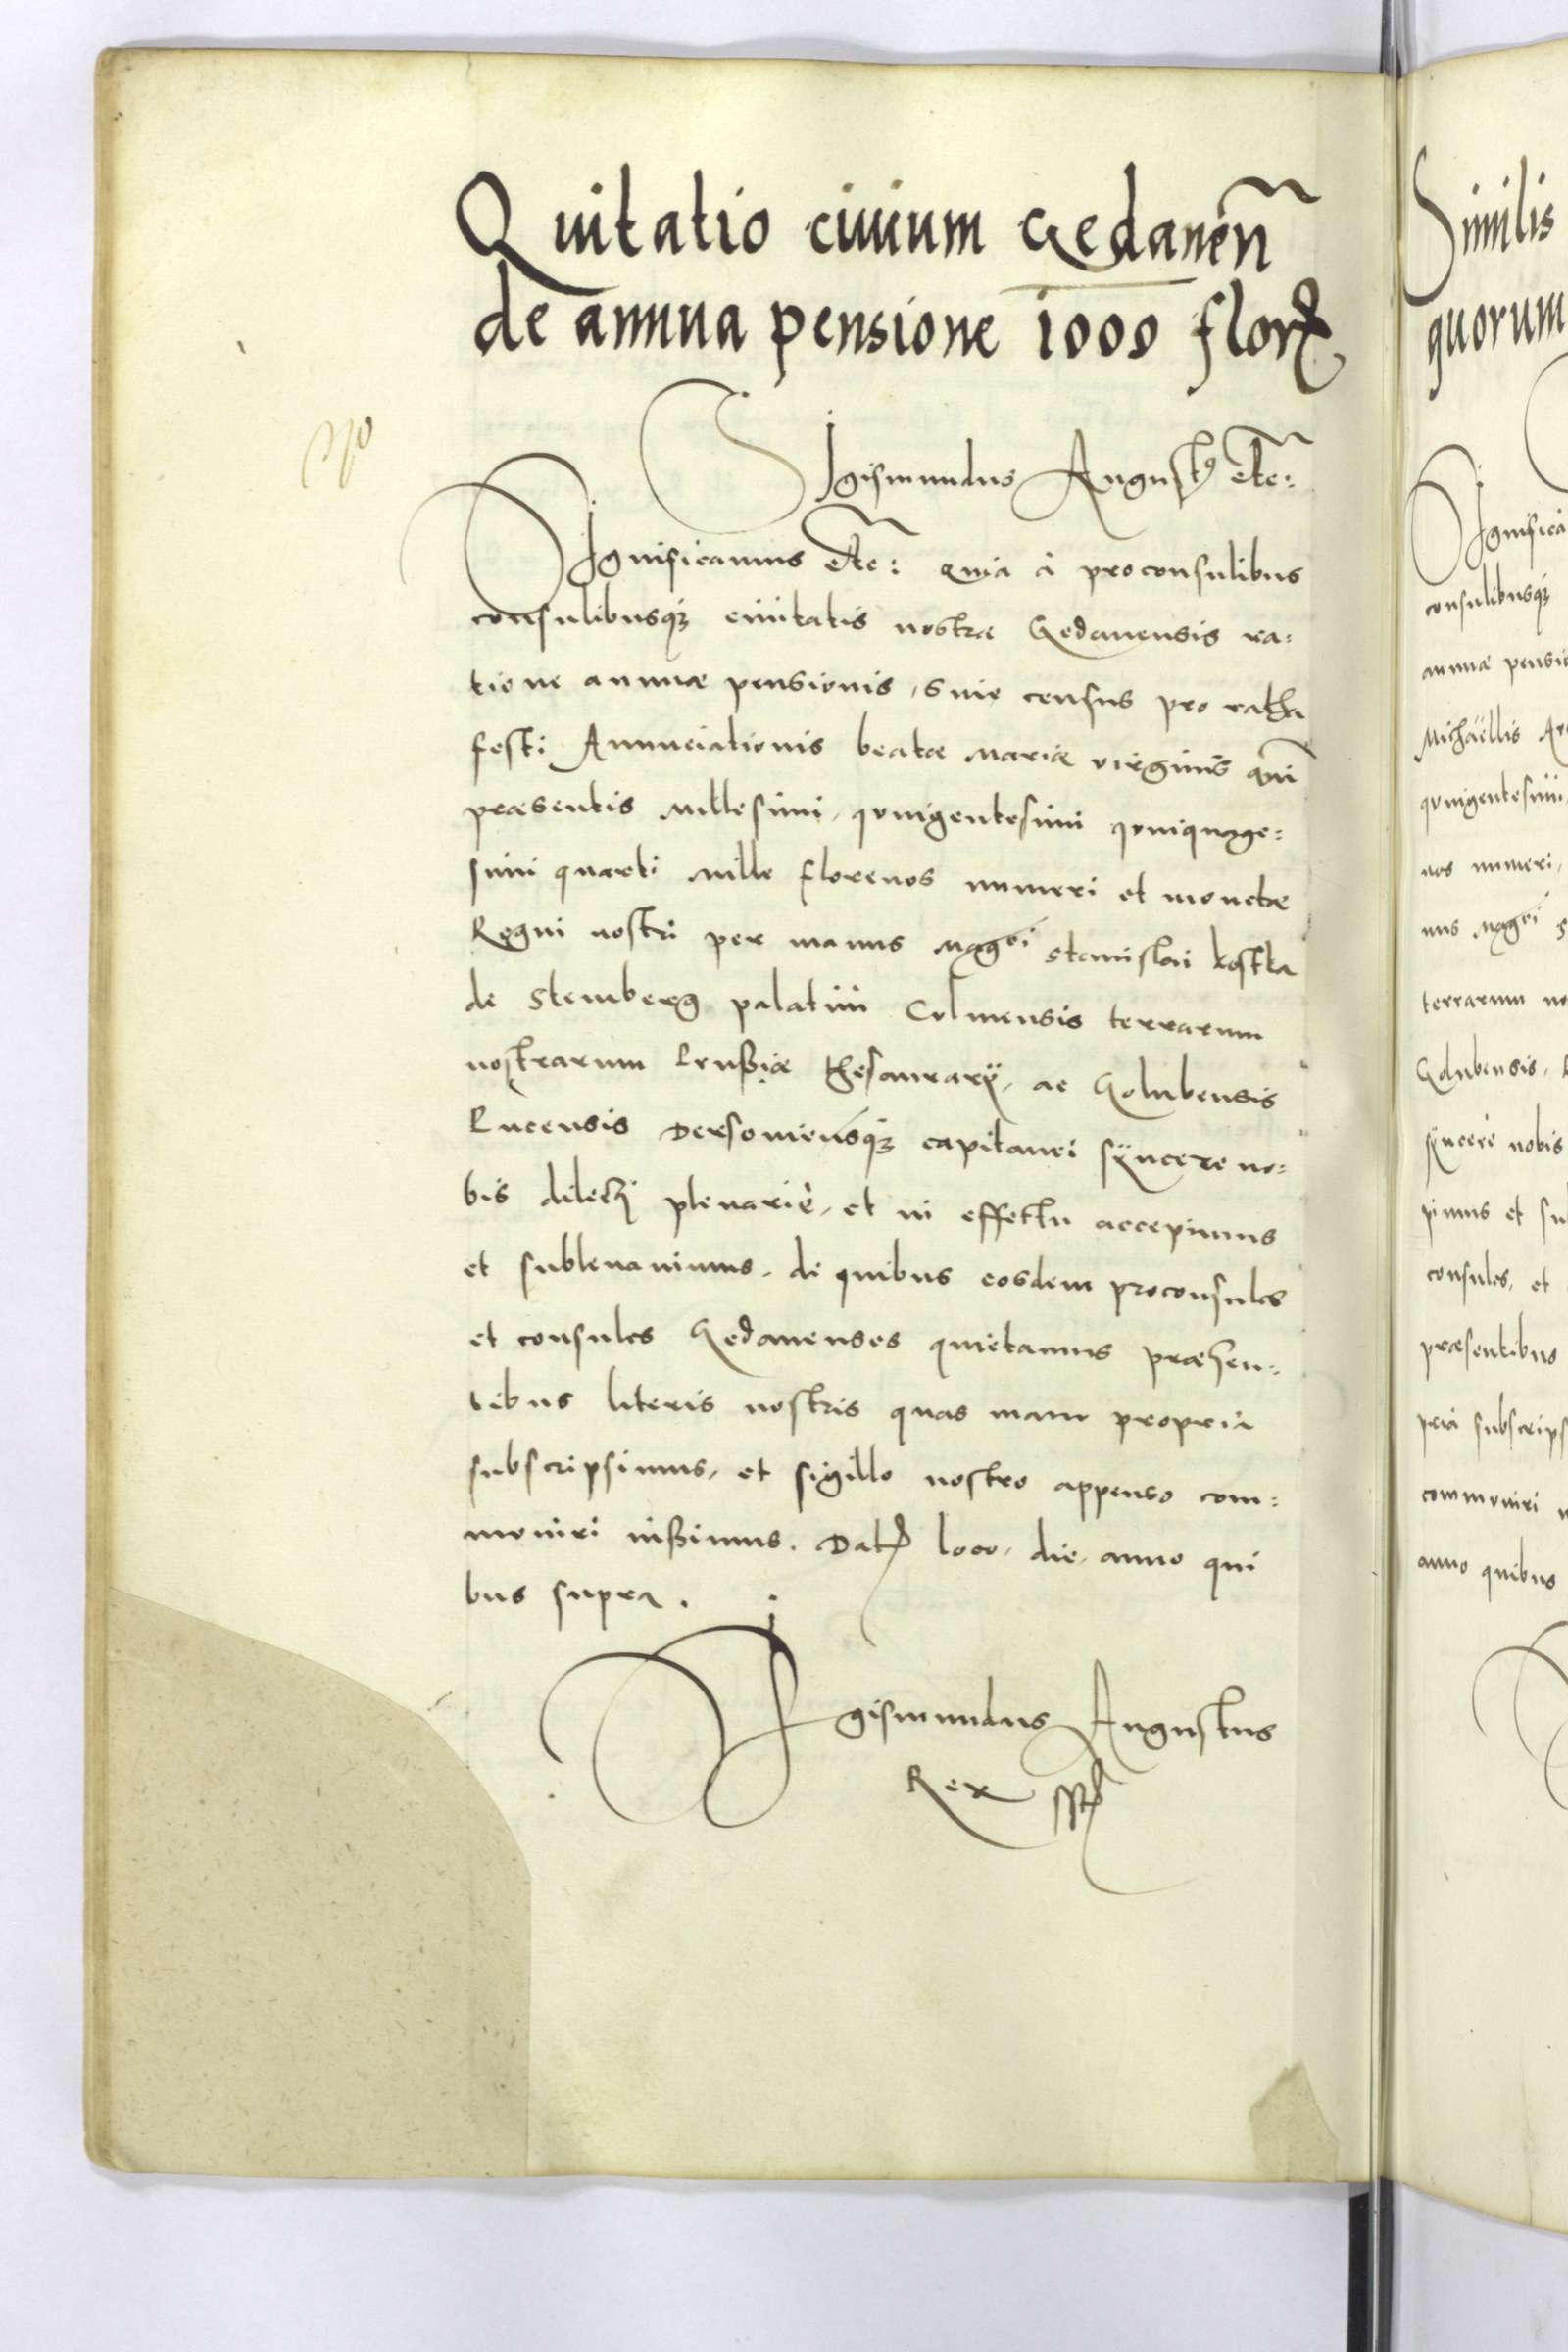 Quitatio ciuium Gedanen̄
de annua pensione 1000 flor
Sigismundus August9 etc:
Significamus etc: quia à proconsulibus
consulibusq3 ciuitatis nostræ Gedanensis ra=
tione annuæ pensionis, siue census pro ratha
festi Annuciationis beatæ Mariæ virginis ani
præsentis millesimi, quingentesimi quinquage=
simi quarti mille florenos numeri et monetæ
Regni nostri per manus Magci Stanislai Kostka
de Stemberg palatini Culmensis terrarum
nostrarum Prussiæ thesaurarÿ, ac Golubensis
Lucensis Dersouiensq3 capitanei sÿncere no=
bis dilecti plenariè, et in effectu accepimus
et subleuauimus, de quibus eosdem proconsules
et consules Gedanenses quietamus præsen=
tibus literis nostris quas manu propria
subscripsimus, et sigillo nostro appenso com=
muniri iussimus. Dat loco, die, anno qui
bus supra.
Sigismundus Augustus
Rex sst
Similis
quorum
Significa
consulibusq3
annuæ pensio
Michaëllis Ar
quingentesimi
nos numeri,
nus Magci S
terrarum no
Golubensis, L
sÿncere nobis
pimus et su
consules, et
præsentibus
pria subscrips
commoniri
anno quibus